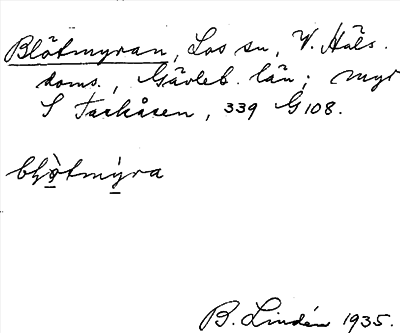 Blötmyran, Los sn, V. Häls.
doms., Gävleb. län; myr
S Tackåsen, 339 G108.
blö̀tmýra
B. Lindén 1935.